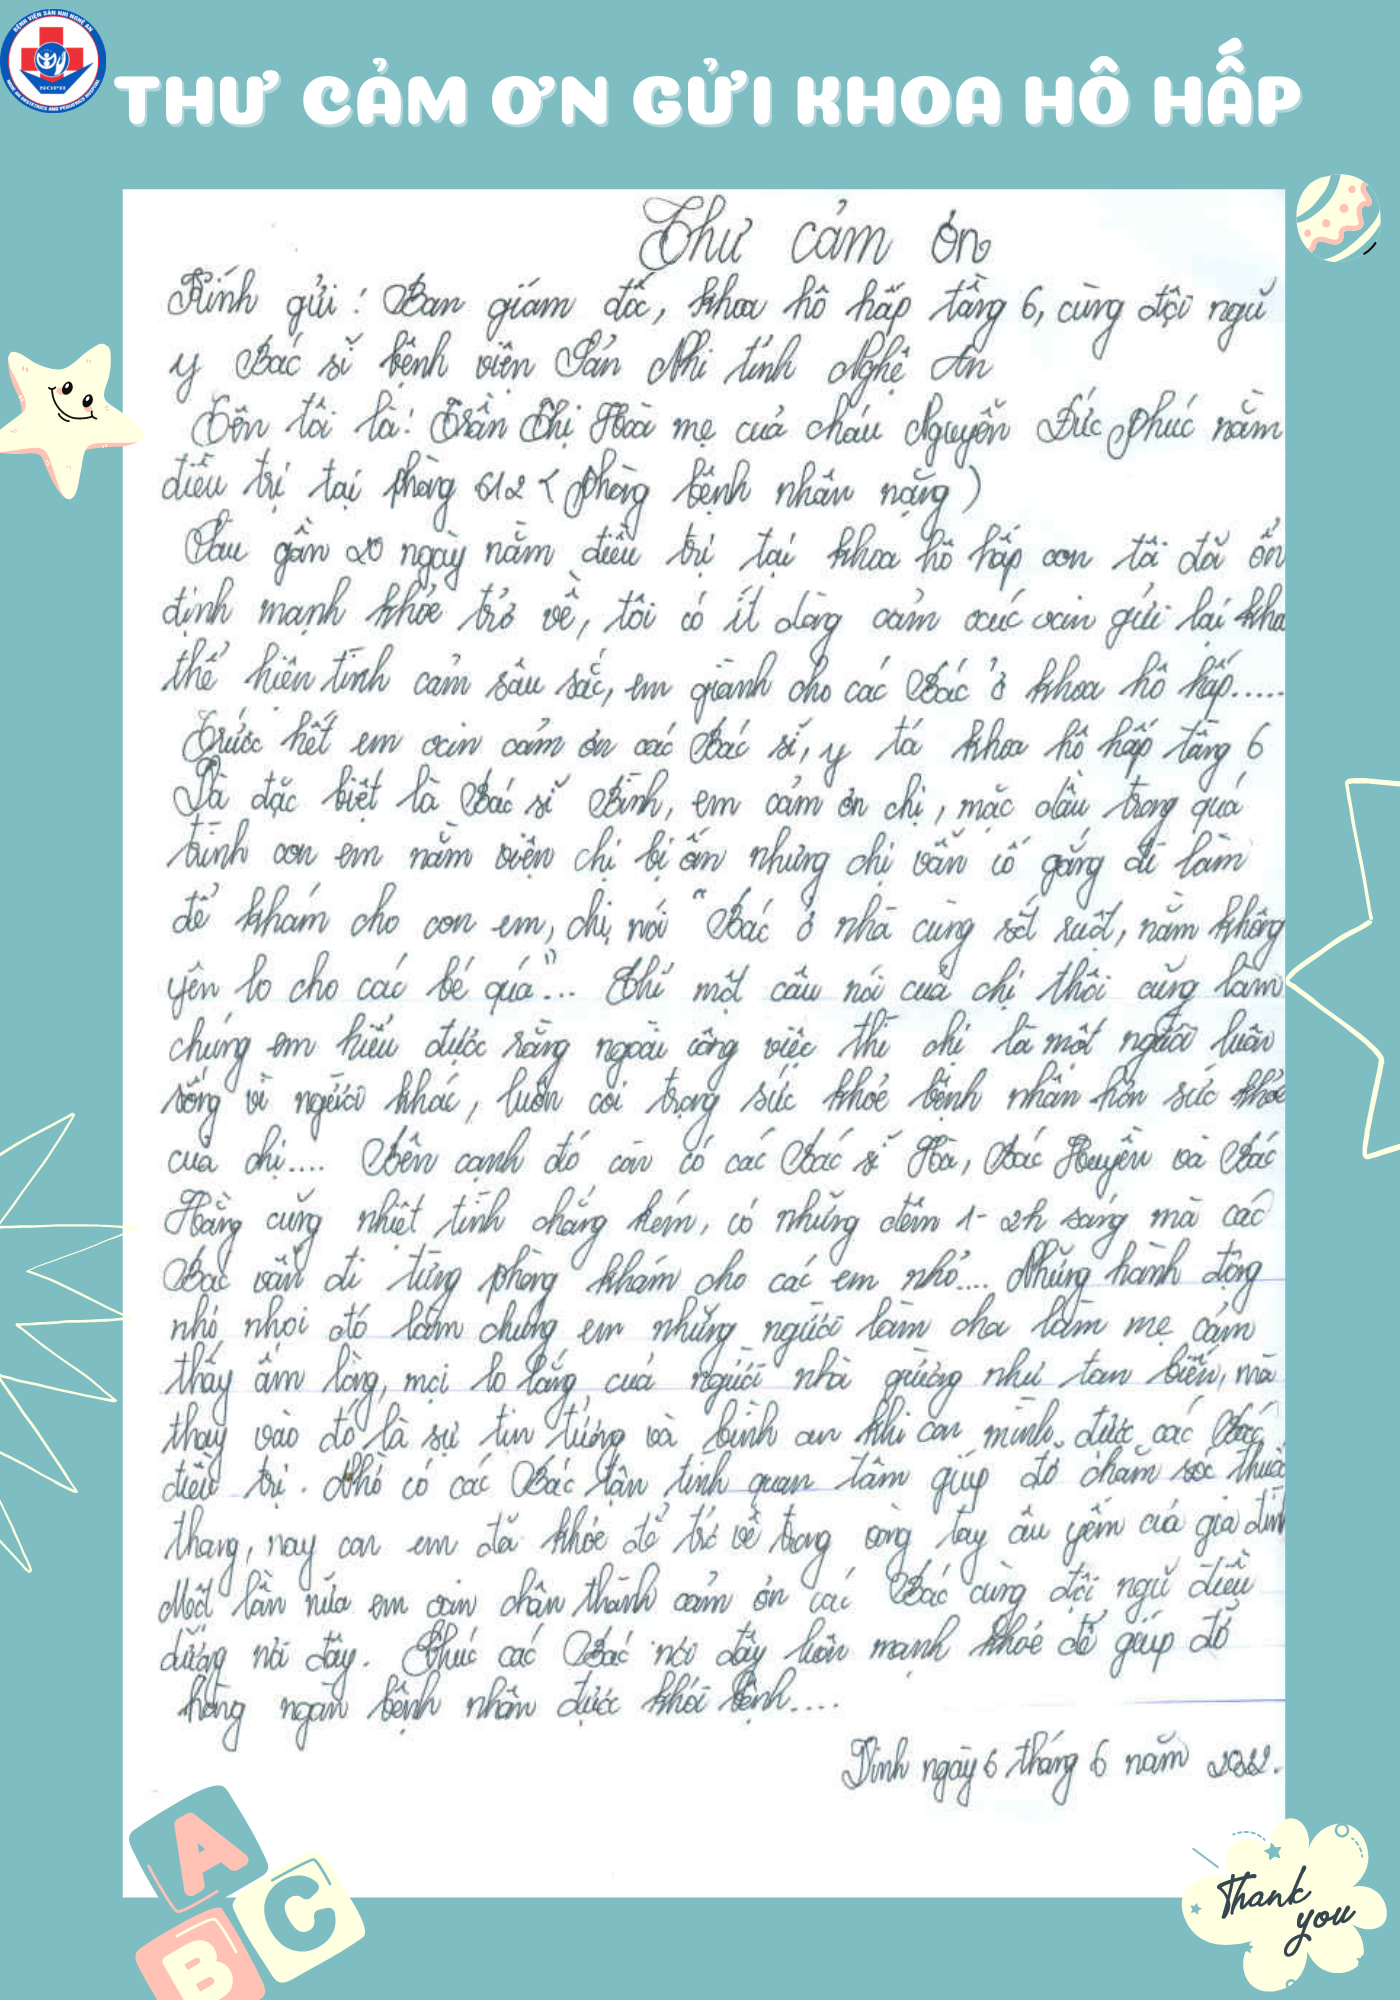 BỆNH VIỆN SẢN NHI NGHỆ AN
NOPH
NGHE AN OBSTETRICS AND PEDIATRICS HOSPITAL
THƯ CẢM ƠN GỬI KHOA HÔ HẤP
Thư cảm ơn
Kính gửi: Ban giám đốc, khoa hô hấp tầng 6, cùng đội ngũ
y Bác sĩ bệnh viện Sản Nhi tỉnh Nghệ An
Tên tôi là: Trần Thị Hoà mẹ của cháu Nguyễn Đức Phúc nằm
điều trị tại phòng 612 (phòng bệnh nhân nặng)
Sau gần 20 ngày nằm điều trị tại khoa hô hấp con tôi đã ổn
định mạnh khỏe trở về, tôi có ít dòng cảm xúc xin gửi lại khoa
thể hiên tình cảm sâu sắc, em giành cho các Bác ở khoa hô hấp.....
Trước hết em xin cảm ơn các Bác sĩ, y tá khoa hô hấp tầng 6
Và đặc biệt là Bác sĩ Bình, em cảm ơn chị, mặc dầu trong quá
trình con em nằm viện chị bị ốm nhưng chị vẫn cố gắng đi làm
để khám cho con em, chị nói "Bác ở nhà cũng sốt ruột, nằm không
yên lo cho các bé quá"... Chỉ một câu nói của chị thôi cũng làm
chúng em hiểu được rằng ngoài công việc thì chị là một người luôn
sống vì người khác, luôn coi trọng sức khỏe bệnh nhân hơn sức khỏe
của chị.... Bên cạnh đó còn có các Bác sĩ Hà, Bác Huyền và Bác
Hằng cũng nhiệt tình chẳng kém, có những đêm 1-2h sáng mà các
Bác vẫn đi từng phòng khám cho các em nhỏ.... Những hành động
nhỏ nhoi đó làm chúng em những người làm cha làm mẹ cảm
thấy ấm lòng, mọi lo lắng của người nhà giường như tan biến, mà
thay vào đó là sự tin tưởng và bình an khi con mình được các Bác
điều trị. Nhờ có các Bác tận tình quan tâm giúp đỡ chăm sóc thuốc
thang, nay con em đã khỏe để trở về trong vòng tay âu yếm của gia đình
Một lần nữa em xin chân thành cảm ơn các Bác cùng đội ngũ điều
dưỡng nơi đây. Chúc các Bác nơi đây luôn mạnh khoẻ để giúp đỡ
hàng ngàn bệnh nhân được khỏi bệnh....
Vinh ngày 6 tháng 6 năm 2022.
A
B
C
Thank
you